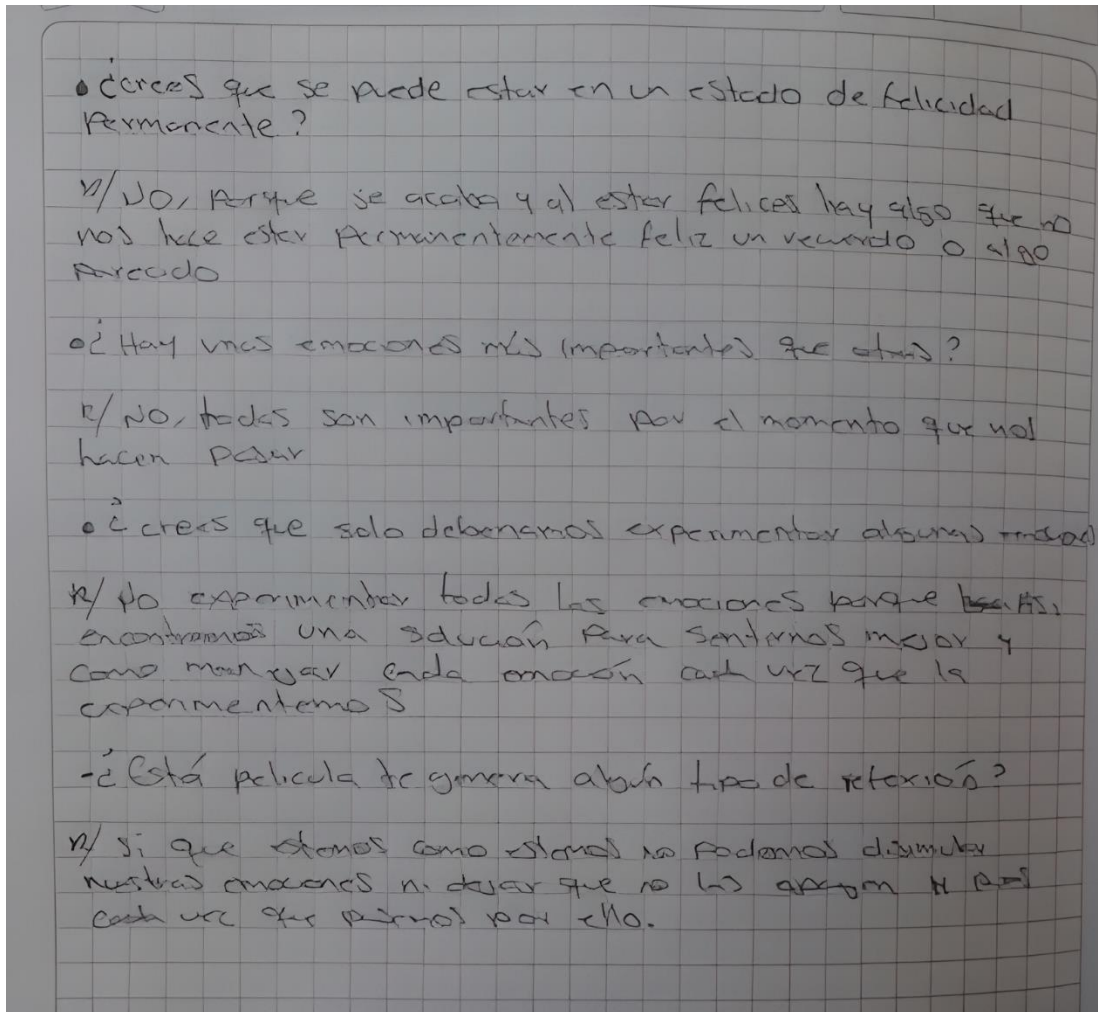 • ¿Crees que se puede estar en un estado de felicidad
Permanente?
R/ NO, Porque se acaba y al estar felices hay algo que no
nos hace estar permanentemente feliz un recuerdo o algo
Parecido
• ¿Hay unas emociones más importantes que otras?
R/ NO, todas son importantes por el momento que nos
hacen pasar
• ¿crees que solo deberiamos experimentar algunas
R/ No experimentar todas las emociones porque Asi
encontramos una solución Para sentirnos mejor y
como manejar cada emoción cada vez que la
experimentemos
- ¿Está pelicula te genera algún tipo de reflexión?
R/ Si que estemos como estemos no Podemos disimular
nuestras emociones ni dejar que no las
cada vez que pasamos por ello.